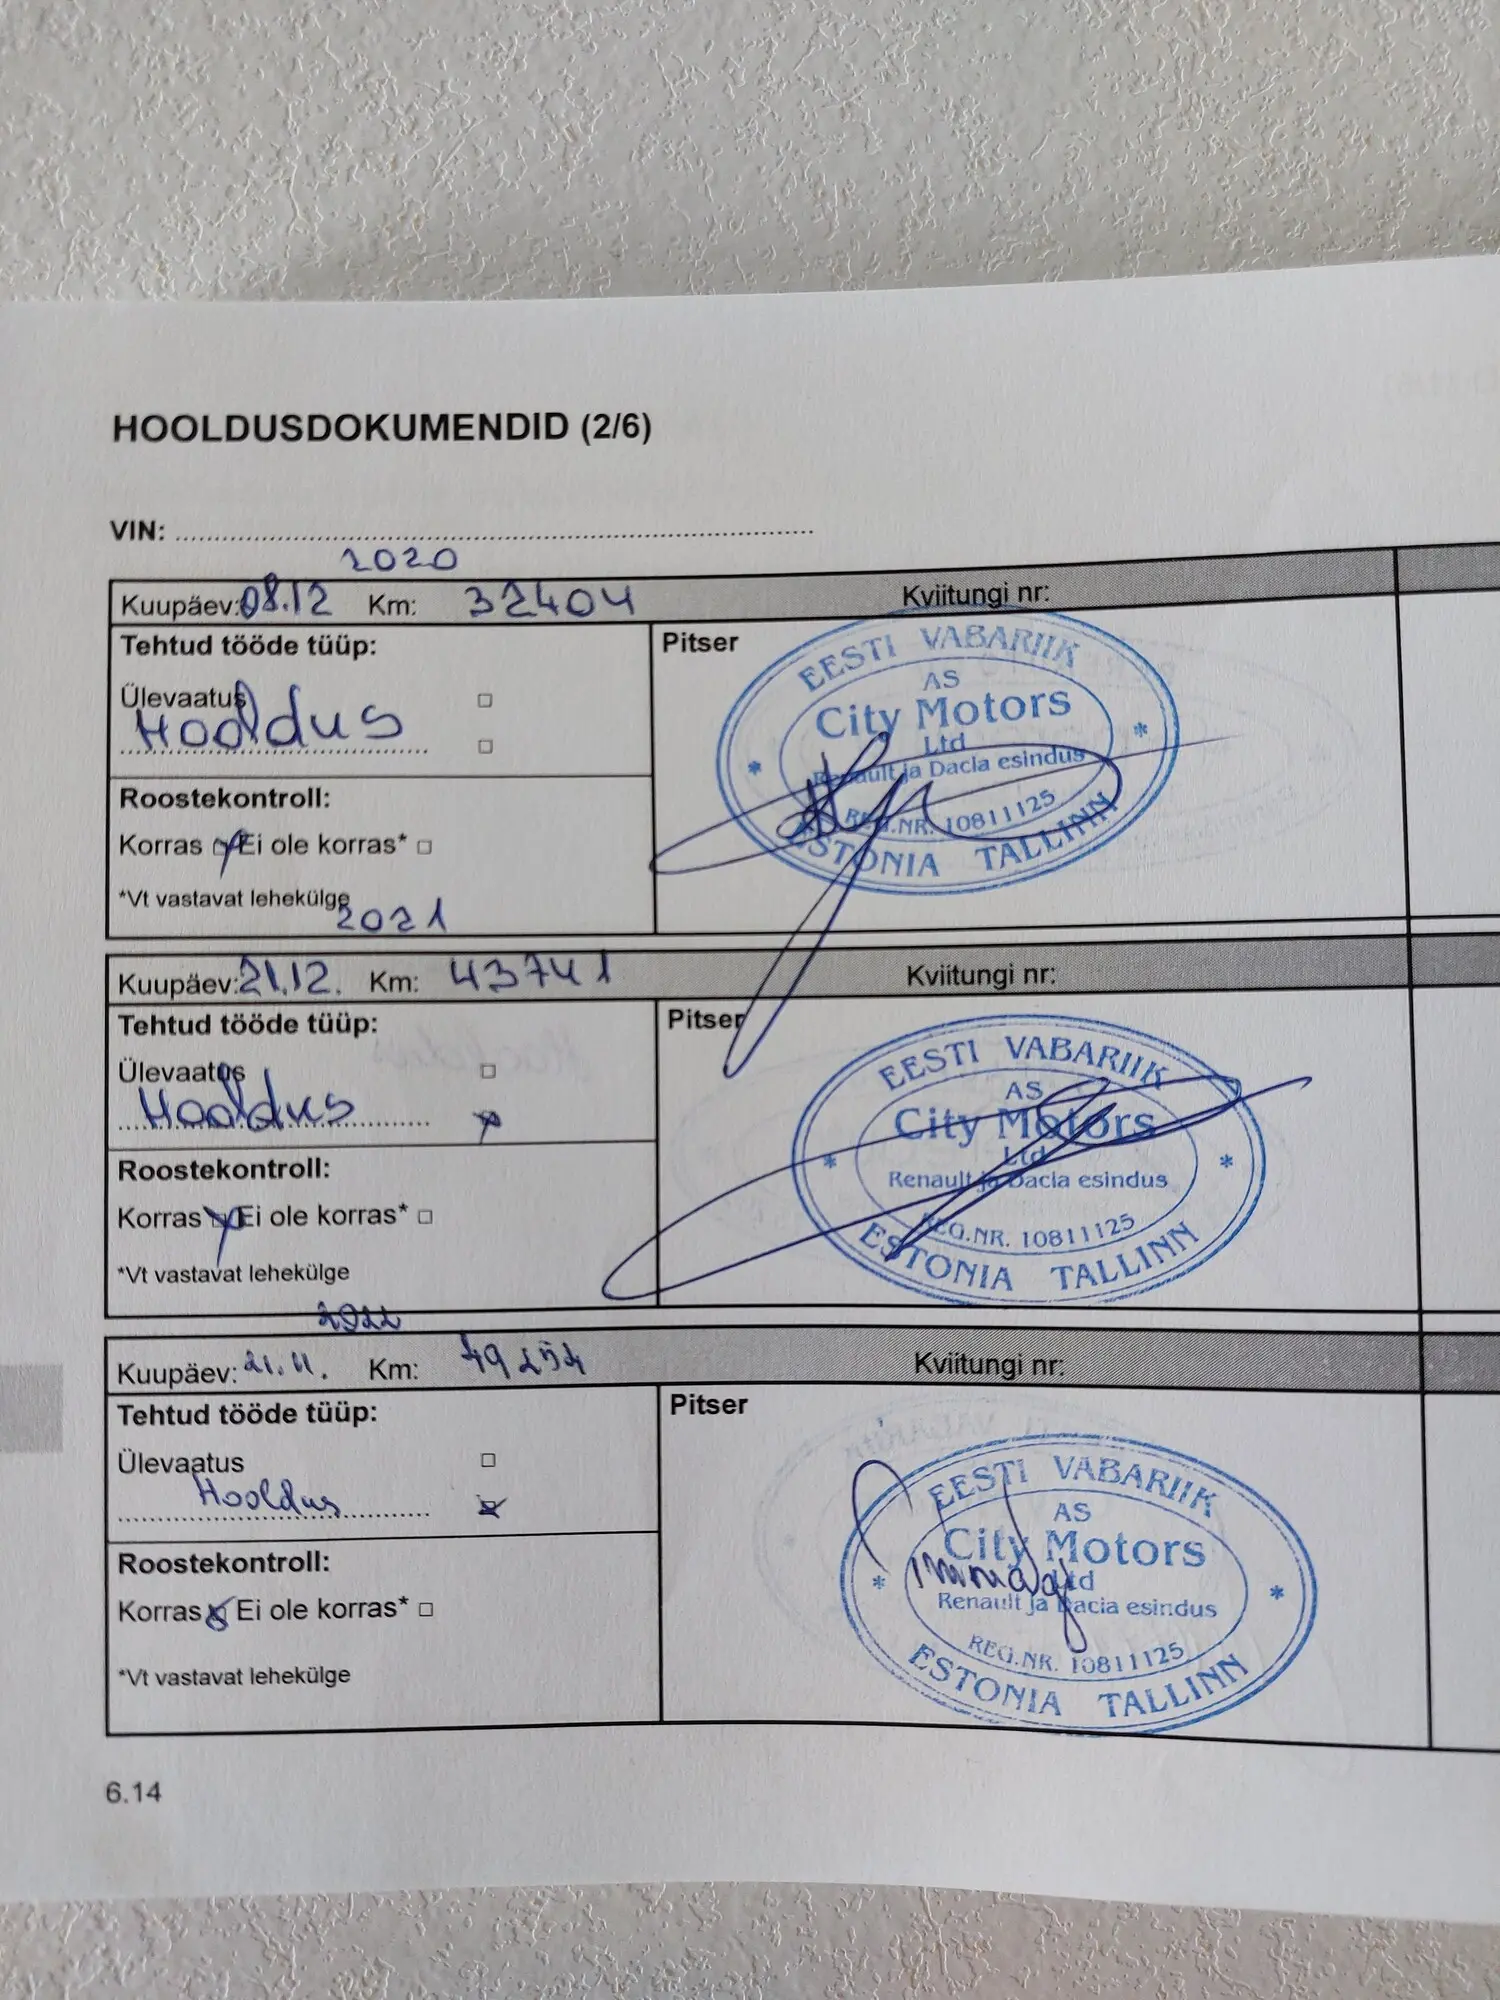 HOOLDUSDOKUMENDID (2/6)
VIN:
2020
Kuupäev: 08.12 Km: 32404 Kviitungi nr:
Tehtud tööde tüüp:
Pitser
Ülevaatus
Hooldus
Roostekontroll:
Korras Ei ole korras*
*Vt vastavat lehekülge
EESTI VABARIIK
AS
City Motors
Ltd
Renault ja Dacia esindus
REG.NR. 10811125
ESTONIA TALLINN
2021
Kuupäev: 21.12. Km: 43741 Kviitungi nr:
Tehtud tööde tüüp:
Pitser
Ülevaatus
Hooldus
Roostekontroll:
Korras Ei ole korras*
*Vt vastavat lehekülge
EESTI VABARIIK
AS
City Motors
Ltd
Renault ja Dacia esindus
REG.NR. 10811125
ESTONIA TALLINN
2022
Kuupäev: 21.11. Km: Kviitungi nr:
Tehtud tööde tüüp:
Pitser
Ülevaatus
Hooldus
Roostekontroll:
Korras Ei ole korras*
*Vt vastavat lehekülge
EESTI VABARIIK
AS
City Motors
Ltd
Renault ja Dacia esindus
REG.NR. 10811125
ESTONIA TALLINN
6.14